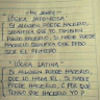 "LÓGICA JAPONESA"
SI ALGUIEN PUEDE HACERLO,
SIGNIFICA QUE YO TAMBIÉN
PUEDO HACERLO, SI NADIE PUEDE
HACERLO SIGNIFICA QUE DEBO
SER EL PRIMERO
"LÓGICA LATINA"
SI ALGUIEN PUEDE HACERLO,
QUE LO HAGA ÉL, SI NADIE
PUEDE HACERLO, ¿POR QUÉ
TENGO QUE HACERLO YO?